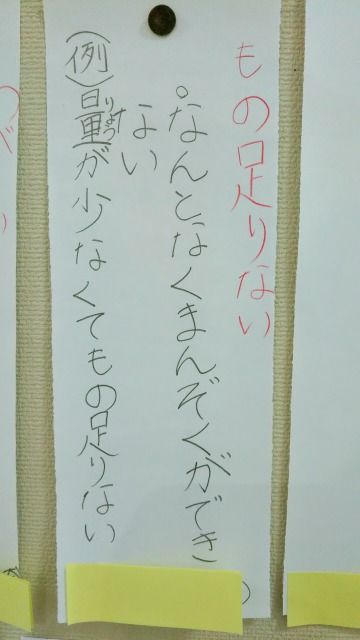 もの足りない
・なんとなくまんぞくができ
ない
(例)量が少なくてもの足りない
りょう